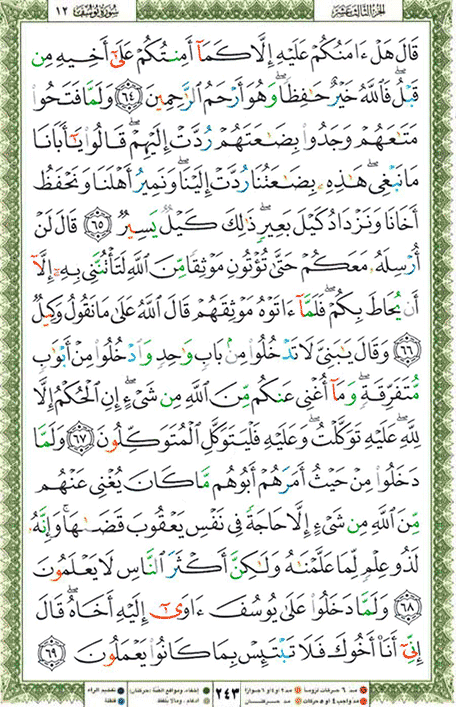 الجزء الثالث عشر
سورة يوسف ١٢
قَالَ هَلْ ءَامَنُكُمْ عَلَيْهِ إِلَّا كَمَآ أَمِنتُكُمْ عَلَىٰٓ أَخِيهِ مِن
قَبْلُ ۖ فَٱللَّهُ خَيْرٌ حَٰفِظًا ۖ وَهُوَ أَرْحَمُ ٱلرَّٰحِمِينَ ٦٤ وَلَمَّا فَتَحُوا۟
مَتَٰعَهُمْ وَجَدُوا۟ بِضَٰعَتَهُمْ رُدَّتْ إِلَيْهِمْ ۖ قَالُوا۟ يَٰٓأَبَانَا
مَا نَبْغِى ۖ هَٰذِهِۦ بِضَٰعَتُنَا رُدَّتْ إِلَيْنَا ۖ وَنَمِيرُ أَهْلَنَا وَنَحْفَظُ
أَخَانَا وَنَزْدَادُ كَيْلَ بَعِيرٍ ۖ ذَٰلِكَ كَيْلٌ يَسِيرٌ ٦٥ قَالَ لَنْ
أُرْسِلَهُۥ مَعَكُمْ حَتَّىٰ تُؤْتُونِ مَوْثِقًا مِّنَ ٱللَّهِ لَتَأْتُنَّنِى بِهِۦٓ إِلَّآ
أَن يُحَاطَ بِكُمْ ۖ فَلَمَّآ ءَاتَوْهُ مَوْثِقَهُمْ قَالَ ٱللَّهُ عَلَىٰ مَا نَقُولُ وَكِيلٌ
٦٦ وَقَالَ يَٰبَنِىَّ لَا تَدْخُلُوا۟ مِنۢ بَابٍ وَٰحِدٍ وَٱدْخُلُوا۟ مِنْ أَبْوَٰبٍ
مُّتَفَرِّقَةٍ ۖ وَمَآ أُغْنِى عَنكُم مِّنَ ٱللَّهِ مِن شَىْءٍ ۖ إِنِ ٱلْحُكْمُ إِلَّا
لِلَّهِ ۖ عَلَيْهِ تَوَكَّلْتُ ۖ وَعَلَيْهِ فَلْيَتَوَكَّلِ ٱلْمُتَوَكِّلُونَ ٦٧ وَلَمَّا
دَخَلُوا۟ مِنْ حَيْثُ أَمَرَهُمْ أَبُوهُم مَّا كَانَ يُغْنِى عَنْهُم
مِّنَ ٱللَّهِ مِن شَىْءٍ إِلَّا حَاجَةً فِى نَفْسِ يَعْقُوبَ قَضَىٰهَا ۚ وَإِنَّهُۥ
لَذُو عِلْمٍ لِّمَا عَلَّمْنَٰهُ وَلَٰكِنَّ أَكْثَرَ ٱلنَّاسِ لَا يَعْلَمُونَ
٦٨ وَلَمَّا دَخَلُوا۟ عَلَىٰ يُوسُفَ ءَاوَىٰٓ إِلَيْهِ أَخَاهُ ۖ قَالَ
إِنِّىٓ أَنَا۠ أَخُوكَ فَلَا تَبْتَئِسْ بِمَا كَانُوا۟ يَعْمَلُونَ ٦٩
مد ٦ حركات لزوماً مد ٢ أو ٤ أو ٦ جوازاً
مد واجب ٤ أو ٥ حركات مد حركتان
٢٤٣
إخفاء، ومواقع الغنة (حركتان) تفخيم الراء
إدغام، وما لا يلفظ قلقلة